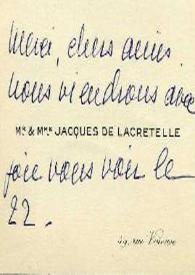 Merci, chers amis
nous viendrons avec
Mr & Mme JACQUES DE LACRETELLE
joie vous voir le
22.
49, rue